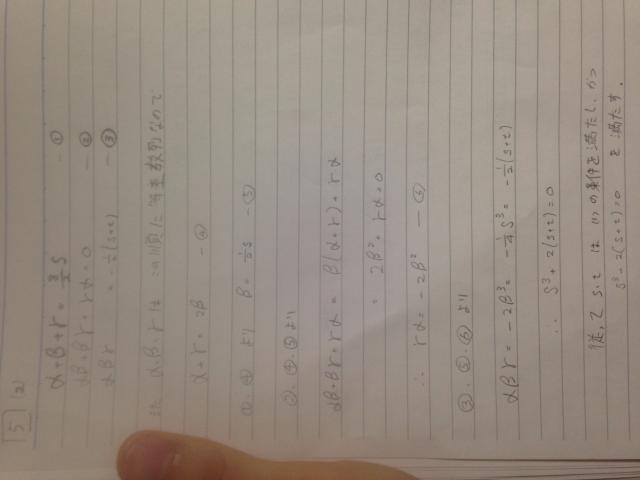 5 (2)
α+β+γ = 3/2 S －①
αβ+βγ+γα = 0 －②
αβγ = -1/2(s+t) －③
また α,β,γは この順に等差数列なので
α+γ = 2β －④
①,④より β = 1/2 S －⑤
②,④,⑤より
αβ+βγ+γα = β(α+γ)+γα
= 2β²+γα=0
∴ γα = -2β² －⑥
③,⑤,⑥より
αβγ = -2β³ = -1/4 S³ = -1/2(s+t)
∴ S³+2(s+t)=0
従って s,tは (1)の条件を満たし、かつ
S³-2(s+t)=0 を満たす。